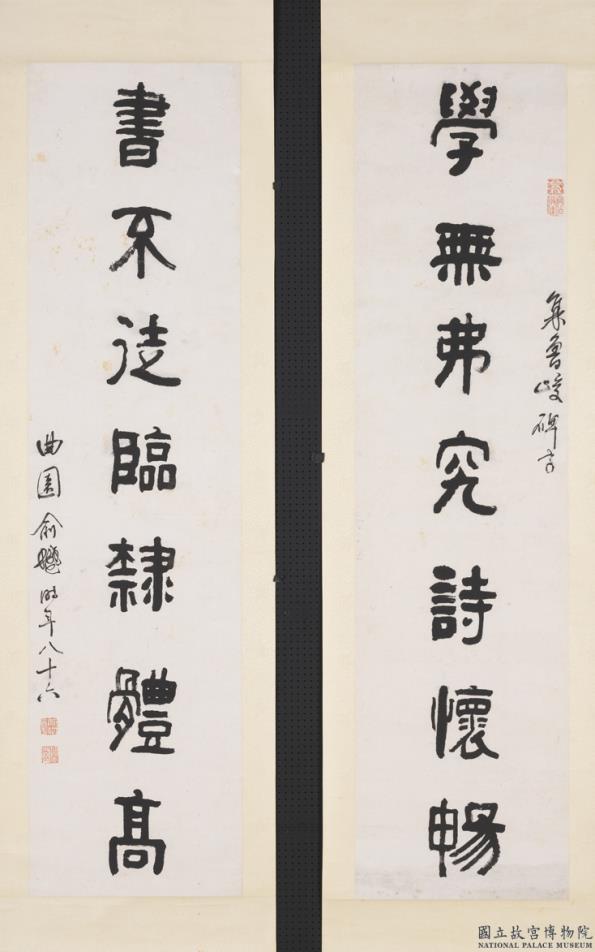 集魯峻碑字
學無弗究詩懷暢
書不徒臨隸體高
曲園俞樾時年八十六
國立故宮博物院
NATIONAL PALACE MUSEUM